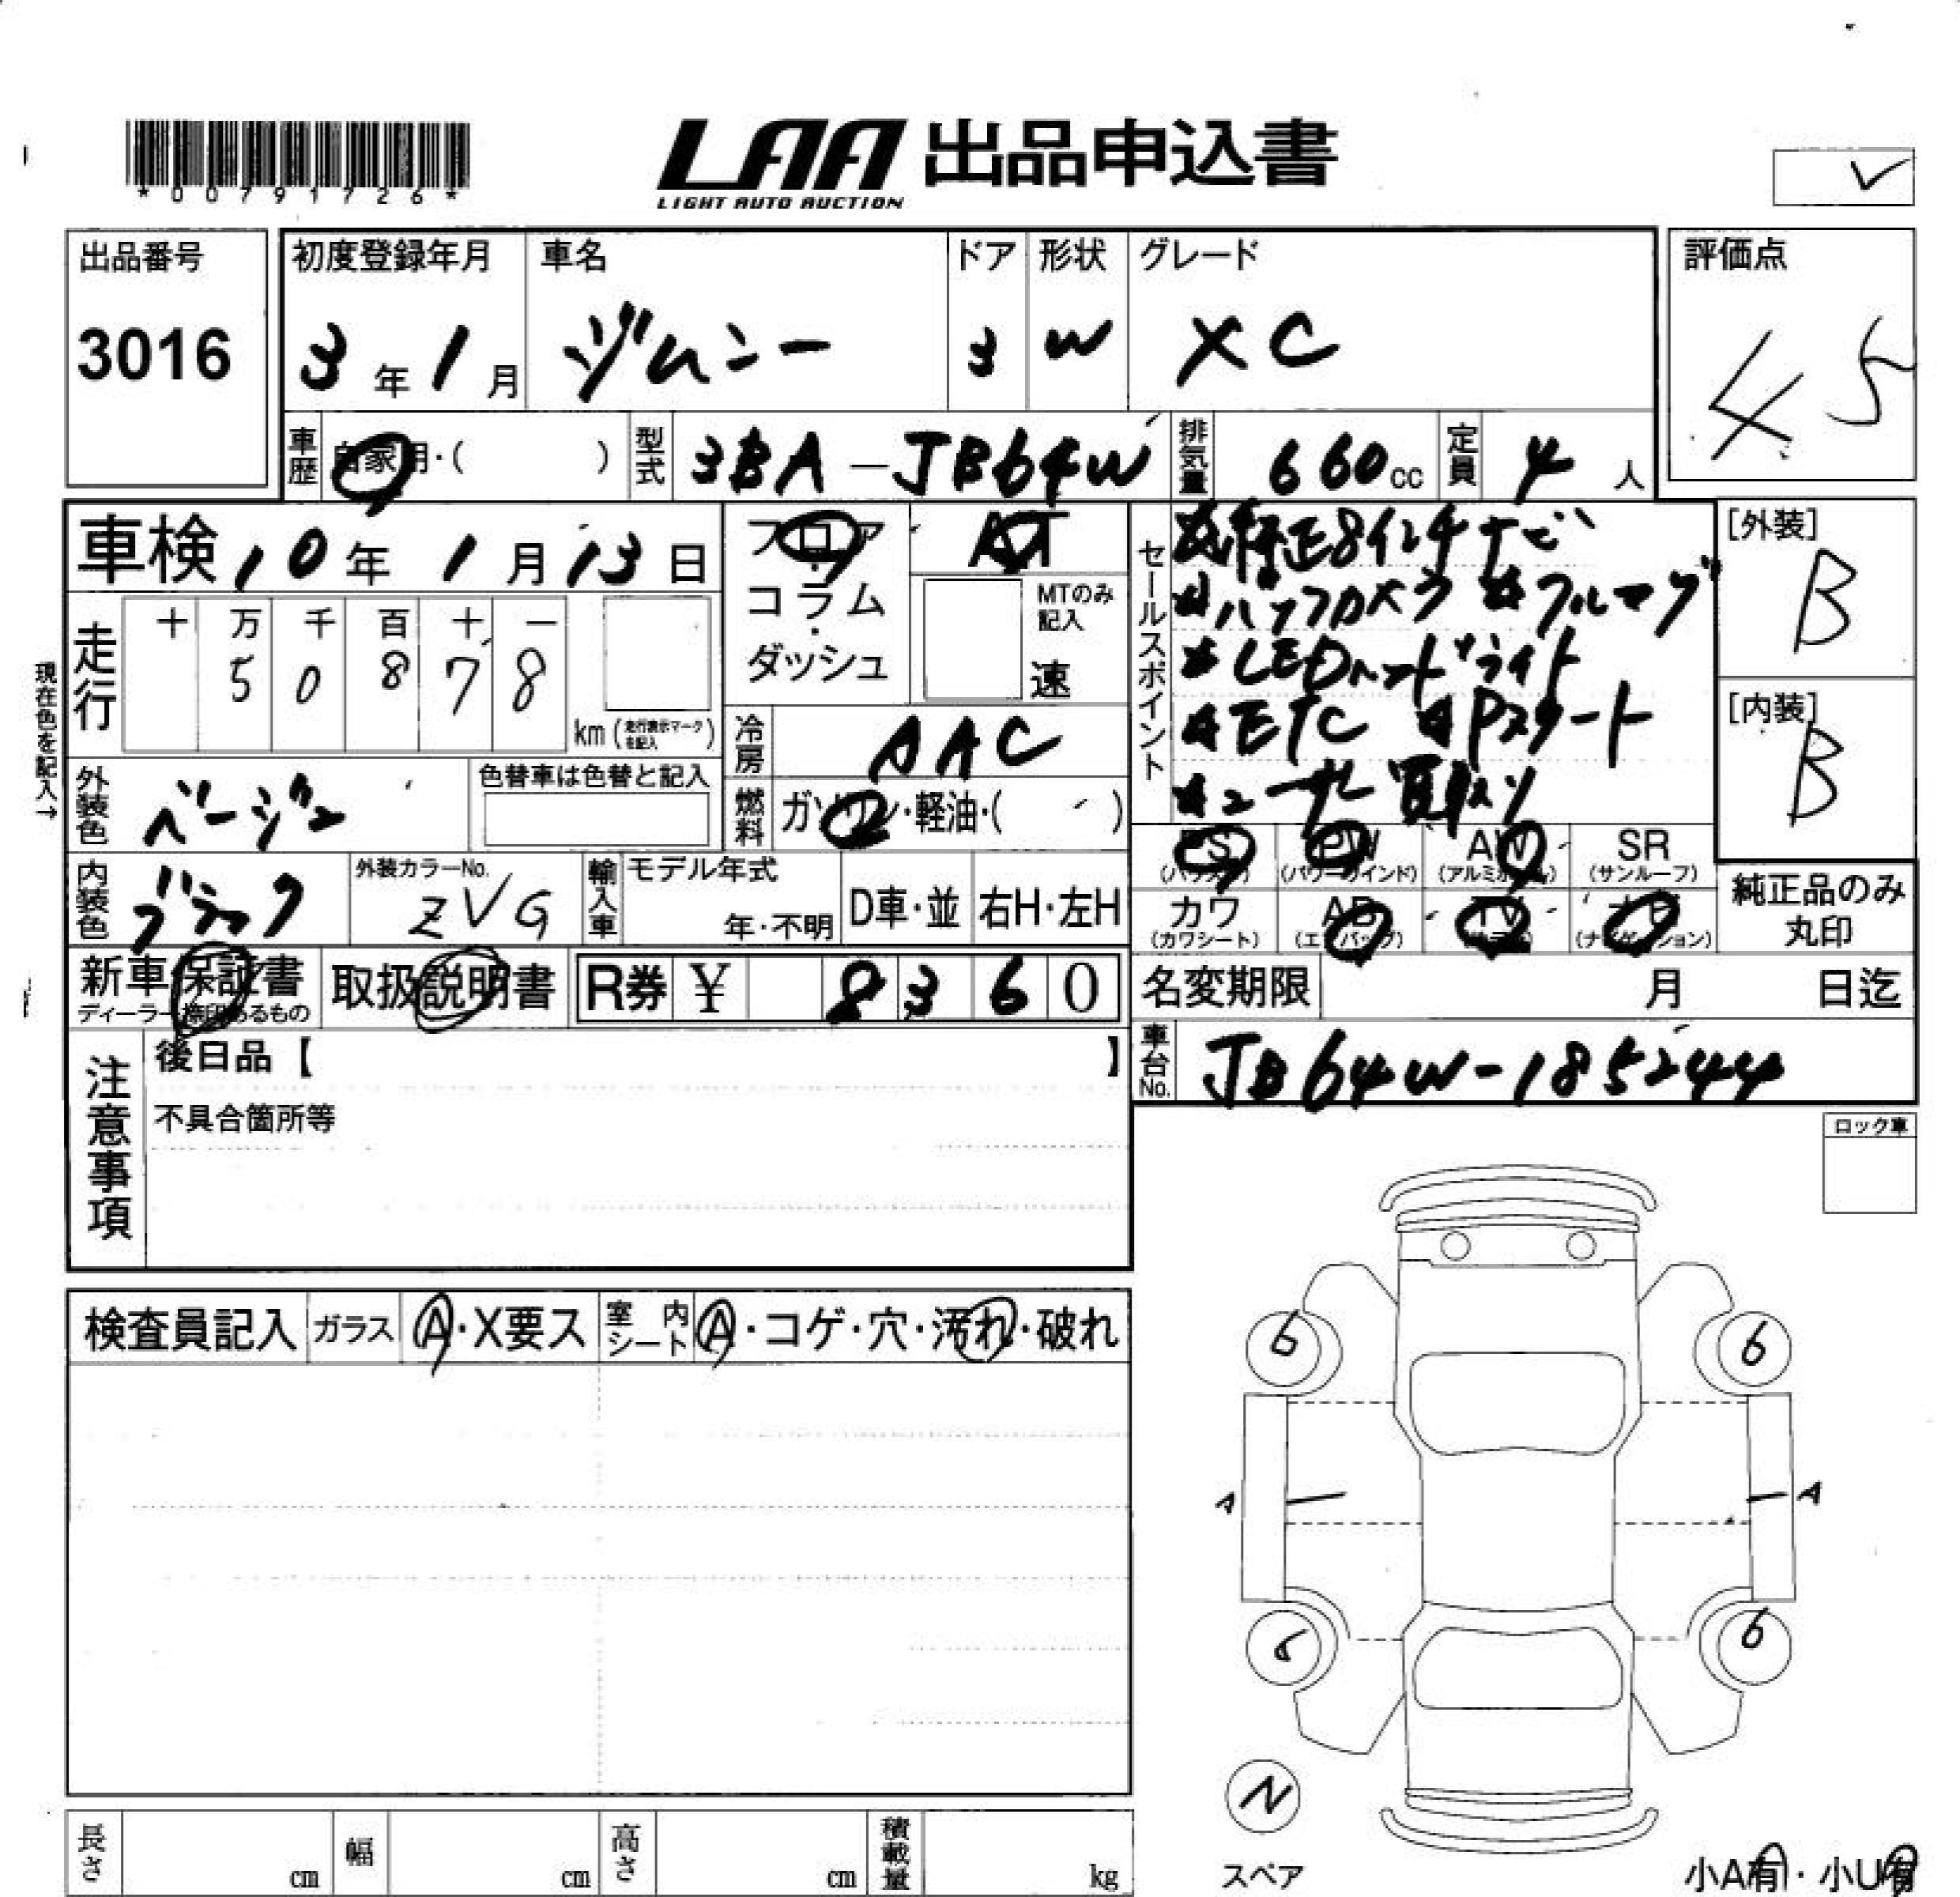 *00791726*
LAA 出品申込書
LIGHT AUTO AUCTION
出品番号 初度登録年月 車名 ドア 形状 グレード 評価点
3016 3年1月 ジムニー 3 W XC 4 5
車歴 自家用・( ) 型式 3BA-JB64W 排気量 660cc 定員 4人
車検 10年1月13日 フロア・コラム・ダッシュ AT MTのみ記入 速
セールスポイント
☆純正8インチナビ
☆バックカメラ ☆フルセグ
☆LEDヘッドライト
☆ETC ☆Pスタート
☆ユーザー買取り
[外装] B
[内装] B
走行 十 万 千 百 十 一
5 0 8 7 8
km(走行表示マークを記入)
現在色を記入→
冷房 AAC
外装色 ベージュ 色替車は色替と記入 燃料 ガソリン・軽油・( )
PS(パワステ) PW(パワーウインド) AW(アルミホイール) SR(サンルーフ)
内装色 ブラック 外装カラーNo. ZVG 輸入車 モデル年式 年・不明 D車・並 右H・左H
カワ(カワシート) AB(エアバッグ) TV ナビ(ナビゲーション) 純正品のみ丸印
新車保証書 ディーラー捺印あるもの 取扱説明書 R券 ¥ 8360 名変期限 月 日迄
注意事項 後日品【 】 車台No. JB64W-185244
不具合箇所等
ロック車
検査員記入 ガラス A・X要ス 室内シート A・コゲ・穴・汚れ・破れ
6 6
A A
6 6
N
スペア
長さ cm 幅 cm 高さ cm 積載量 kg
小A有・小U有